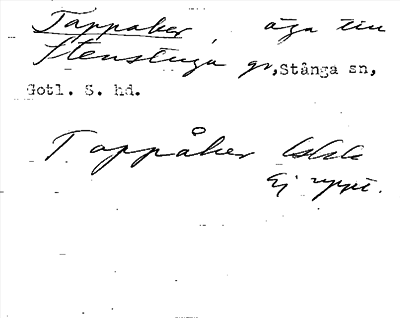 Tappåker, äga till
Stenstugu gd, Stånga sn,
Gotl. S. hd.
Tappåker
Ej uppt.